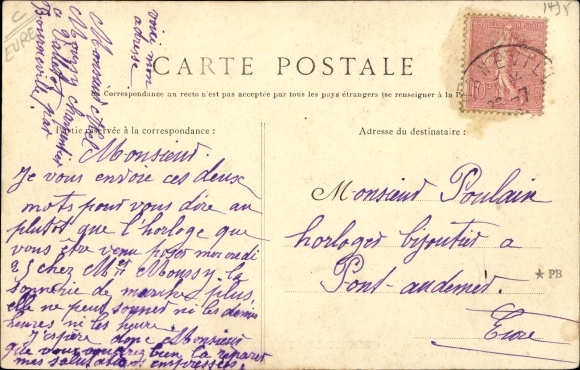 C
EURE
voici mon
adresse
Monsieur Abel
Moussy charpentier
a
Bonneville par
14/5
CARTE POSTALE
Correspondance au recto n'est pas acceptée par tous les pays étrangers (se renseigner à la P
Partie réservée à la correspondance :
Adresse du destinataire :
Monsieur.
Je vous envoie ces deux
mots pour vous dire au
plutot que l'horloge que
vous être venu poser mercredi
25 chez Mr Moussy la
sonnerie de marche plus,
elle ne peut sonner ni les demis
heures ni les heure.
J'espère donc Monsieur
que vous voudrez bien la réparer
mes salutations empressées,
Monsieur Poulain
horloger bijoutier a
Pont-audemer.
Eure
★ PB
10